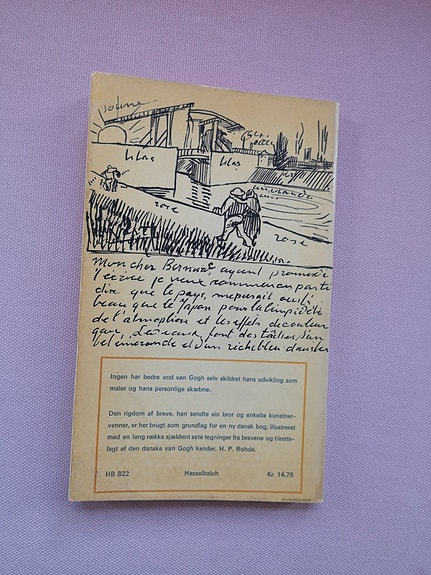 jaune
lilas
lilas
rose
rose
Mon cher Bernard, ayant promis de
t'écrire je veux commencer par te
dire que le pays me parait aussi
beau que le Japon pour la limpidité
de l'atmosphère et les effets de couleur
gaie. Les eaux font des taches d'un
bel émeraude et d'un riche bleu dans les
Ingen har bedre end van Gogh selv skildret hans udvikling som
maler og hans personlige skæbne.
Den rigdom af breve, han sendte sin bror og enkelte kunstner-
venner, er her brugt som grundlag for en ny dansk bog, illustreret
med en lang række sjældent sete tegninger fra brevene og tilrette-
lagt af den danske van Gogh kender, H. P. Rohde.
HB 822 Hasselbalch Kr. 14,75